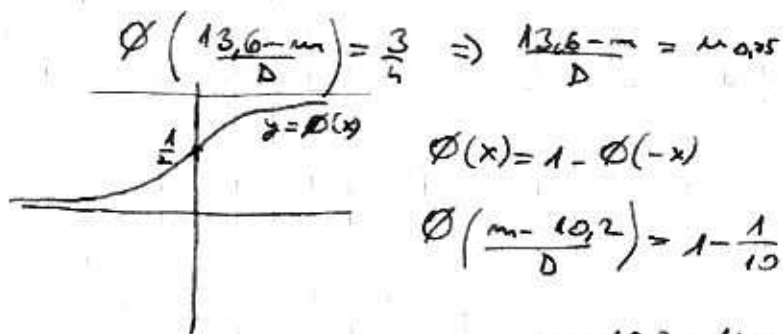 Ø ( (13,6 - m) / D ) = 3/4 => (13,6 - m) / D = u 0,75
1/2
y = Ø(x)
Ø(x) = 1 - Ø(-x)
Ø ( (m - 10,2) / D ) = 1 - 1/10